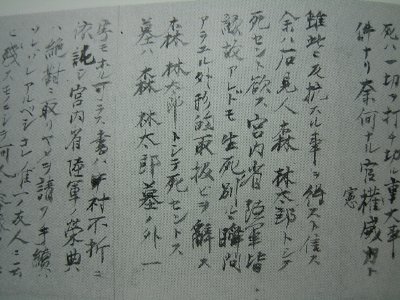 死ハ一切ヲ打チ切ル重大事
件ナリ奈何ナル官權威力ト
憲
雖此ニ反抗スル事ヲ得スト信ス
余ハ石見人森林太郎トシテ
死セント欲ス宮内省陸軍皆
縁故アレドモ生死別ルヽ瞬間
アラユル外形的取扱ヒヲ辭ス
森林太郎トシテ死セントス
墓ハ森林太郎墓ノ外一
字モホル可ラス書ハ中村不折ニ
依託シ宮内省陸軍ノ榮典
ハ絶對ニ取リヤメヲ請フ手續ハ
ソレゾレアルベシコレ唯一ノ友人ニ云ヒ
殘スモノニシテ何人ノ